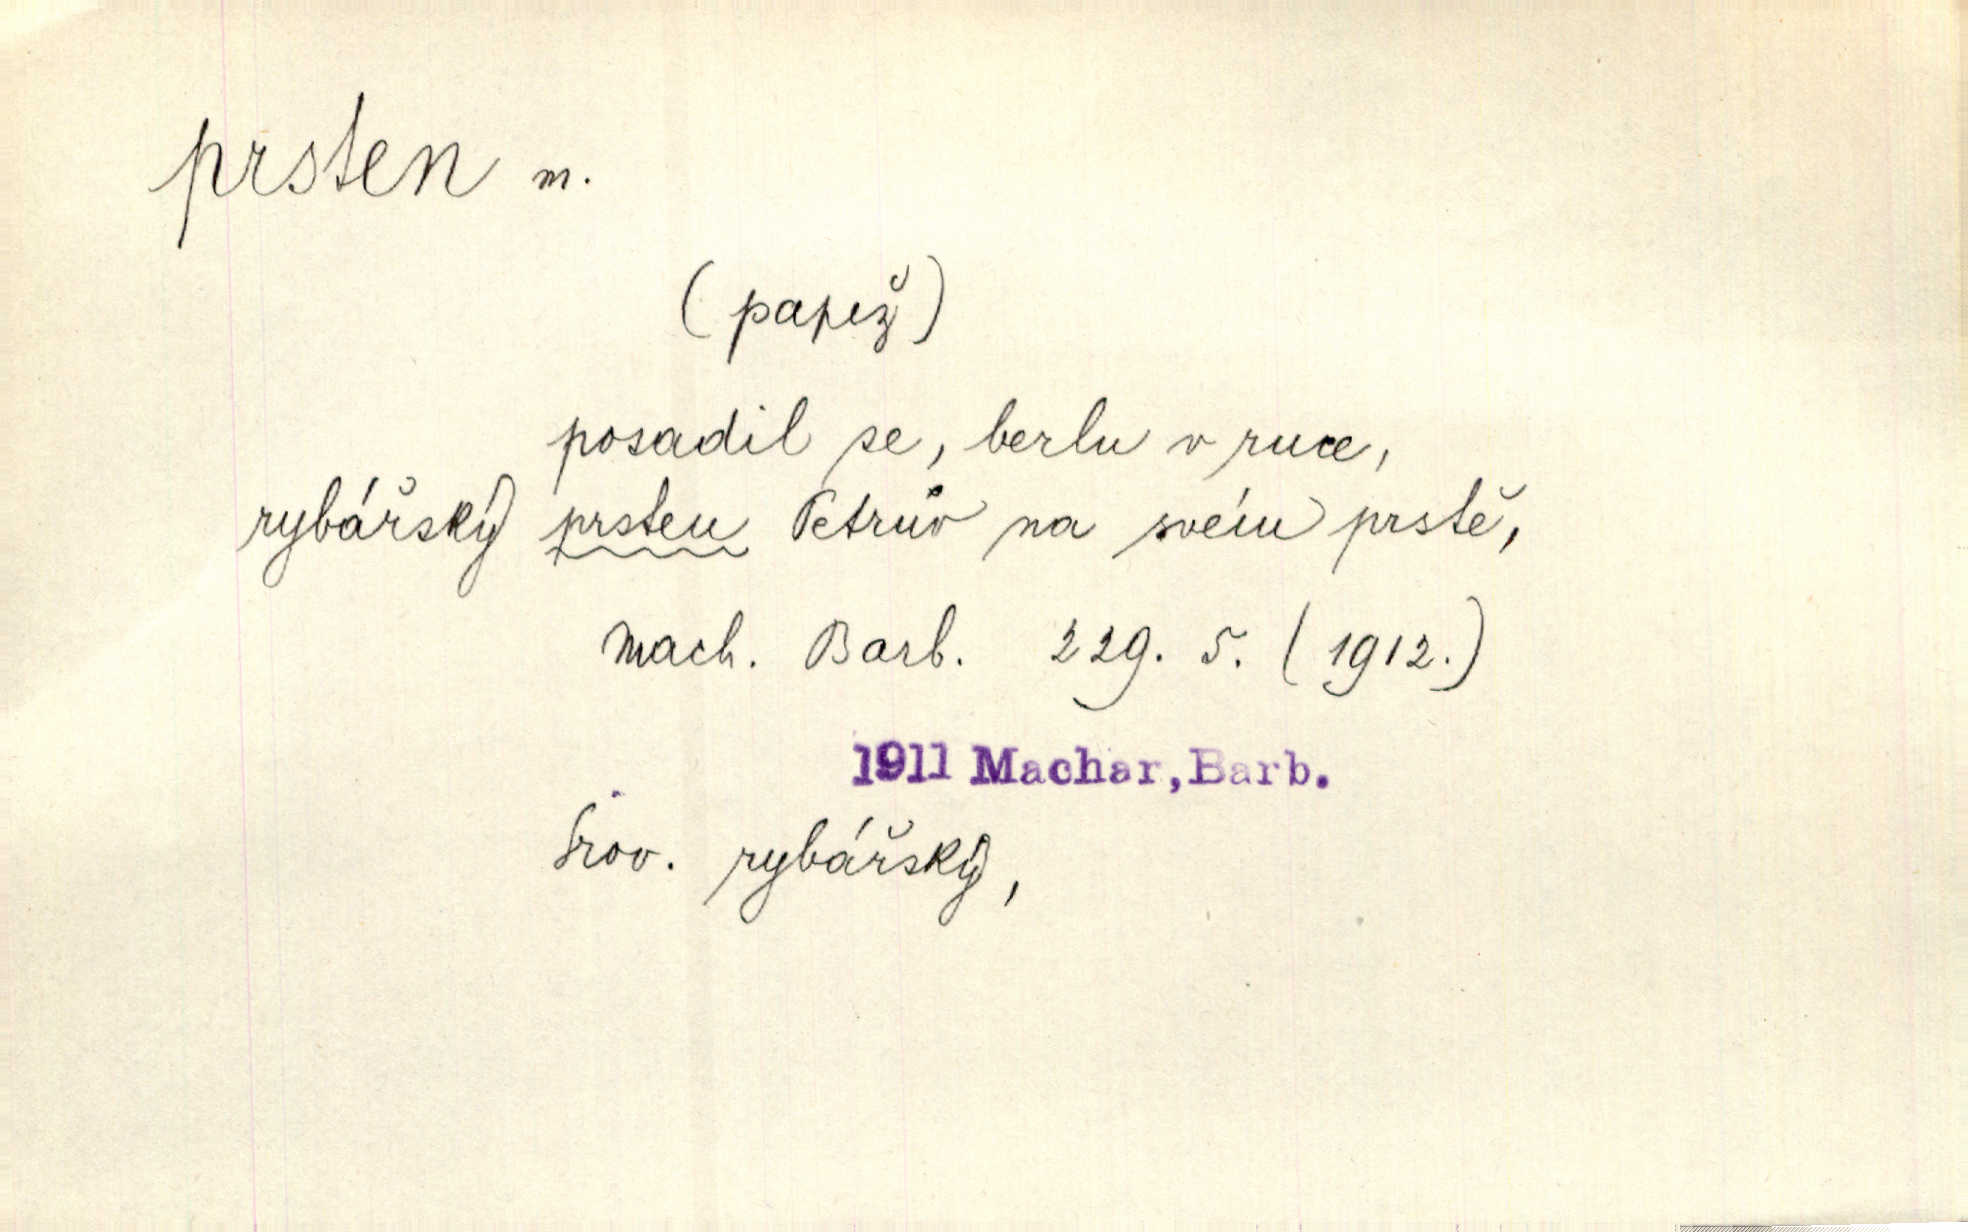 prsten m.
(papež)
posadil se, berlu v ruce,
rybářský prsten Petrův na svém prstě,
Mach. Barb. 229. 5. (1912.)
1911 Machar, Barb.
Srov. rybářský,